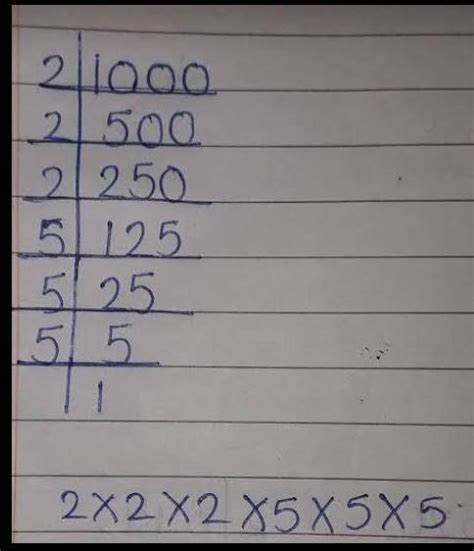 2 1000
2 500
2 250
5 125
5 25
5 5
1
2×2×2×5×5×5